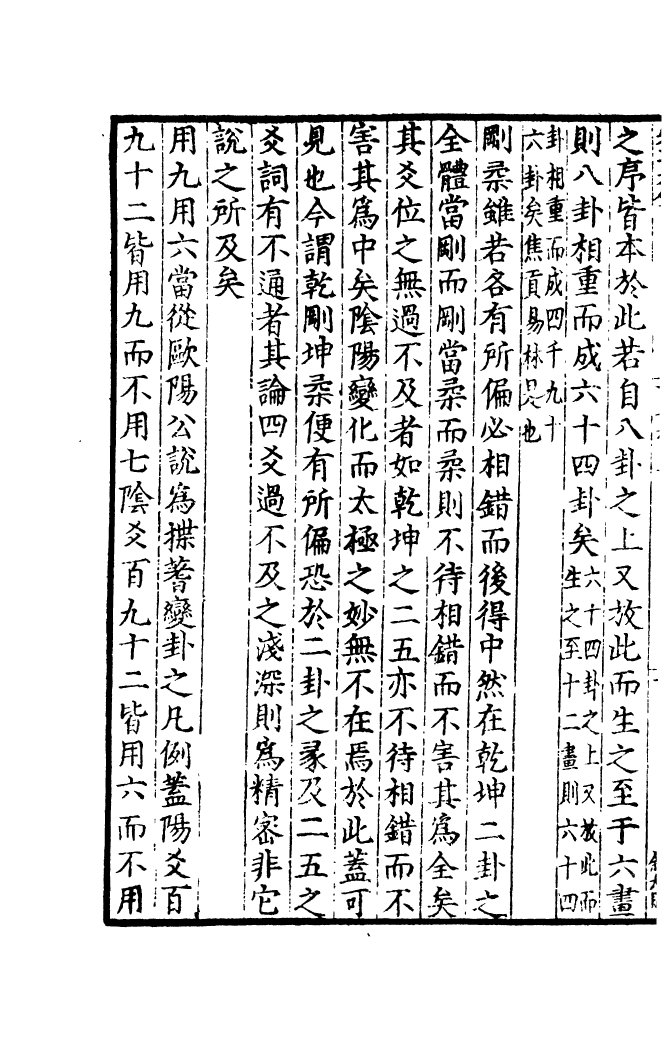 之序皆本於此若自八卦之上又放此而生之至于六畫
則八卦相重而成六十四卦矣六十四卦之上又放此而
生之至十二畫則六十四
卦相重而成四千九十
六卦矣焦貢易林是也
剛柔雖若各有所偏必相錯而後得中然在乾坤二卦之
全體當剛而剛當柔而柔則不待相錯而不害其爲全矣
其爻位之無過不及者如乾坤之二五亦不待相錯而不
害其爲中矣陰陽變化而太極之妙無不在焉於此蓋可
見也今謂乾剛坤柔便有所偏恐於二卦之彖及二五之
爻詞有不通者其論四爻過不及之淺深則爲精密非它
說之所及矣
用九用六當從歐陽公說爲揲蓍變卦之凡例蓋陽爻百
九十二皆用九而不用七陰爻百九十二皆用六而不用